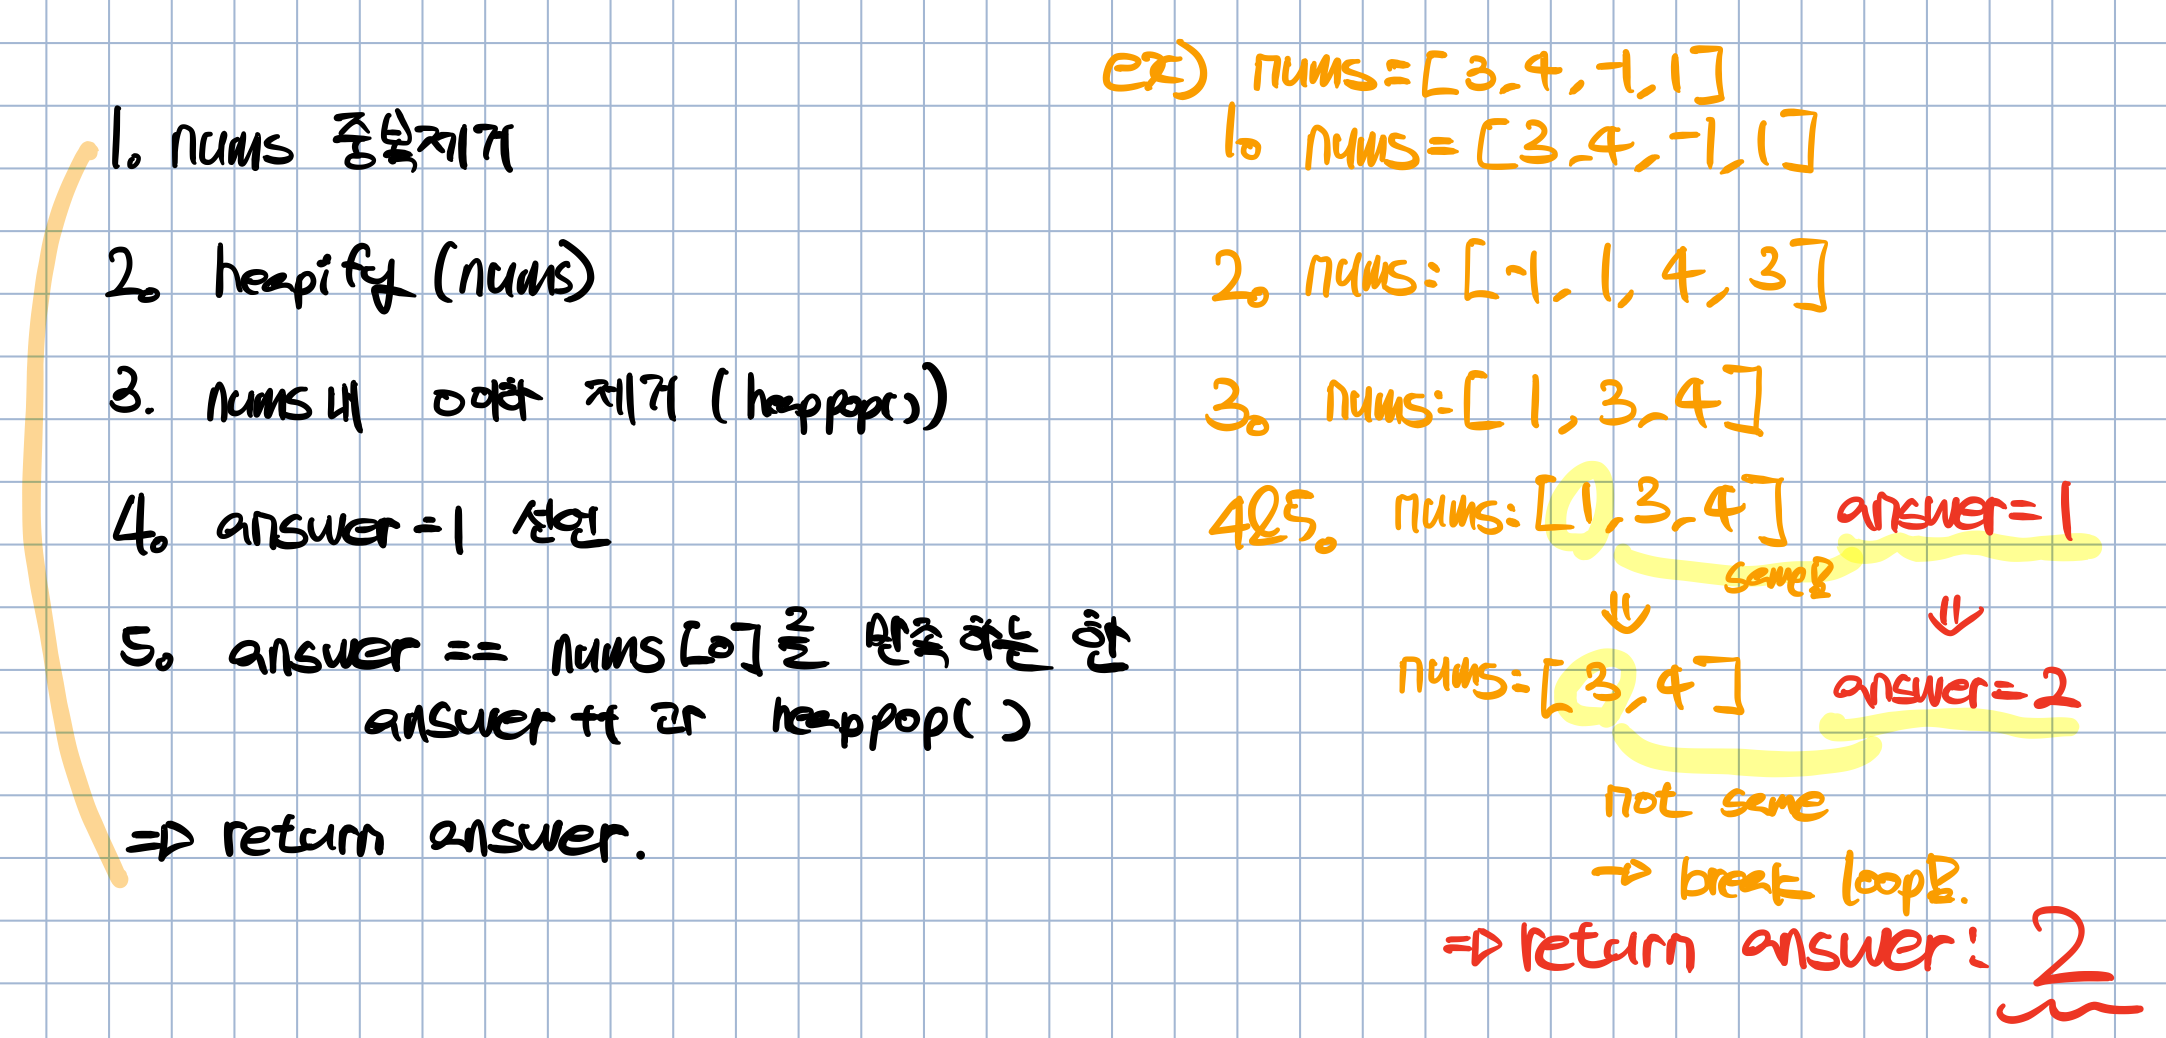 1. nums 중복제거
2. heapify (nums)
3. nums 내 0이하 제거 (heappop())
4. answer = 1 선언
5. answer == nums[0]를 만족하는 한
answer ++ 과 heappop()
⇒ return answer.
ex) nums = [3, 4, -1, 1]
1. nums = [3, 4, -1, 1]
2. nums: [-1, 1, 4, 3]
3. nums: [1, 3, 4]
4&5. nums: [1, 3, 4] answer = 1
same!
⇓ ⇓
nums: [3, 4] answer = 2
not same
→ break loop!.
⇒ return answer: 2